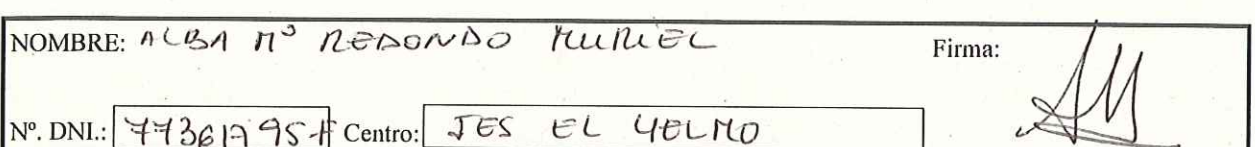 NOMBRE: ALBA Mª REDONDO MURIEL Firma:
Nº. DNI.: Centro: IES EL YELMO